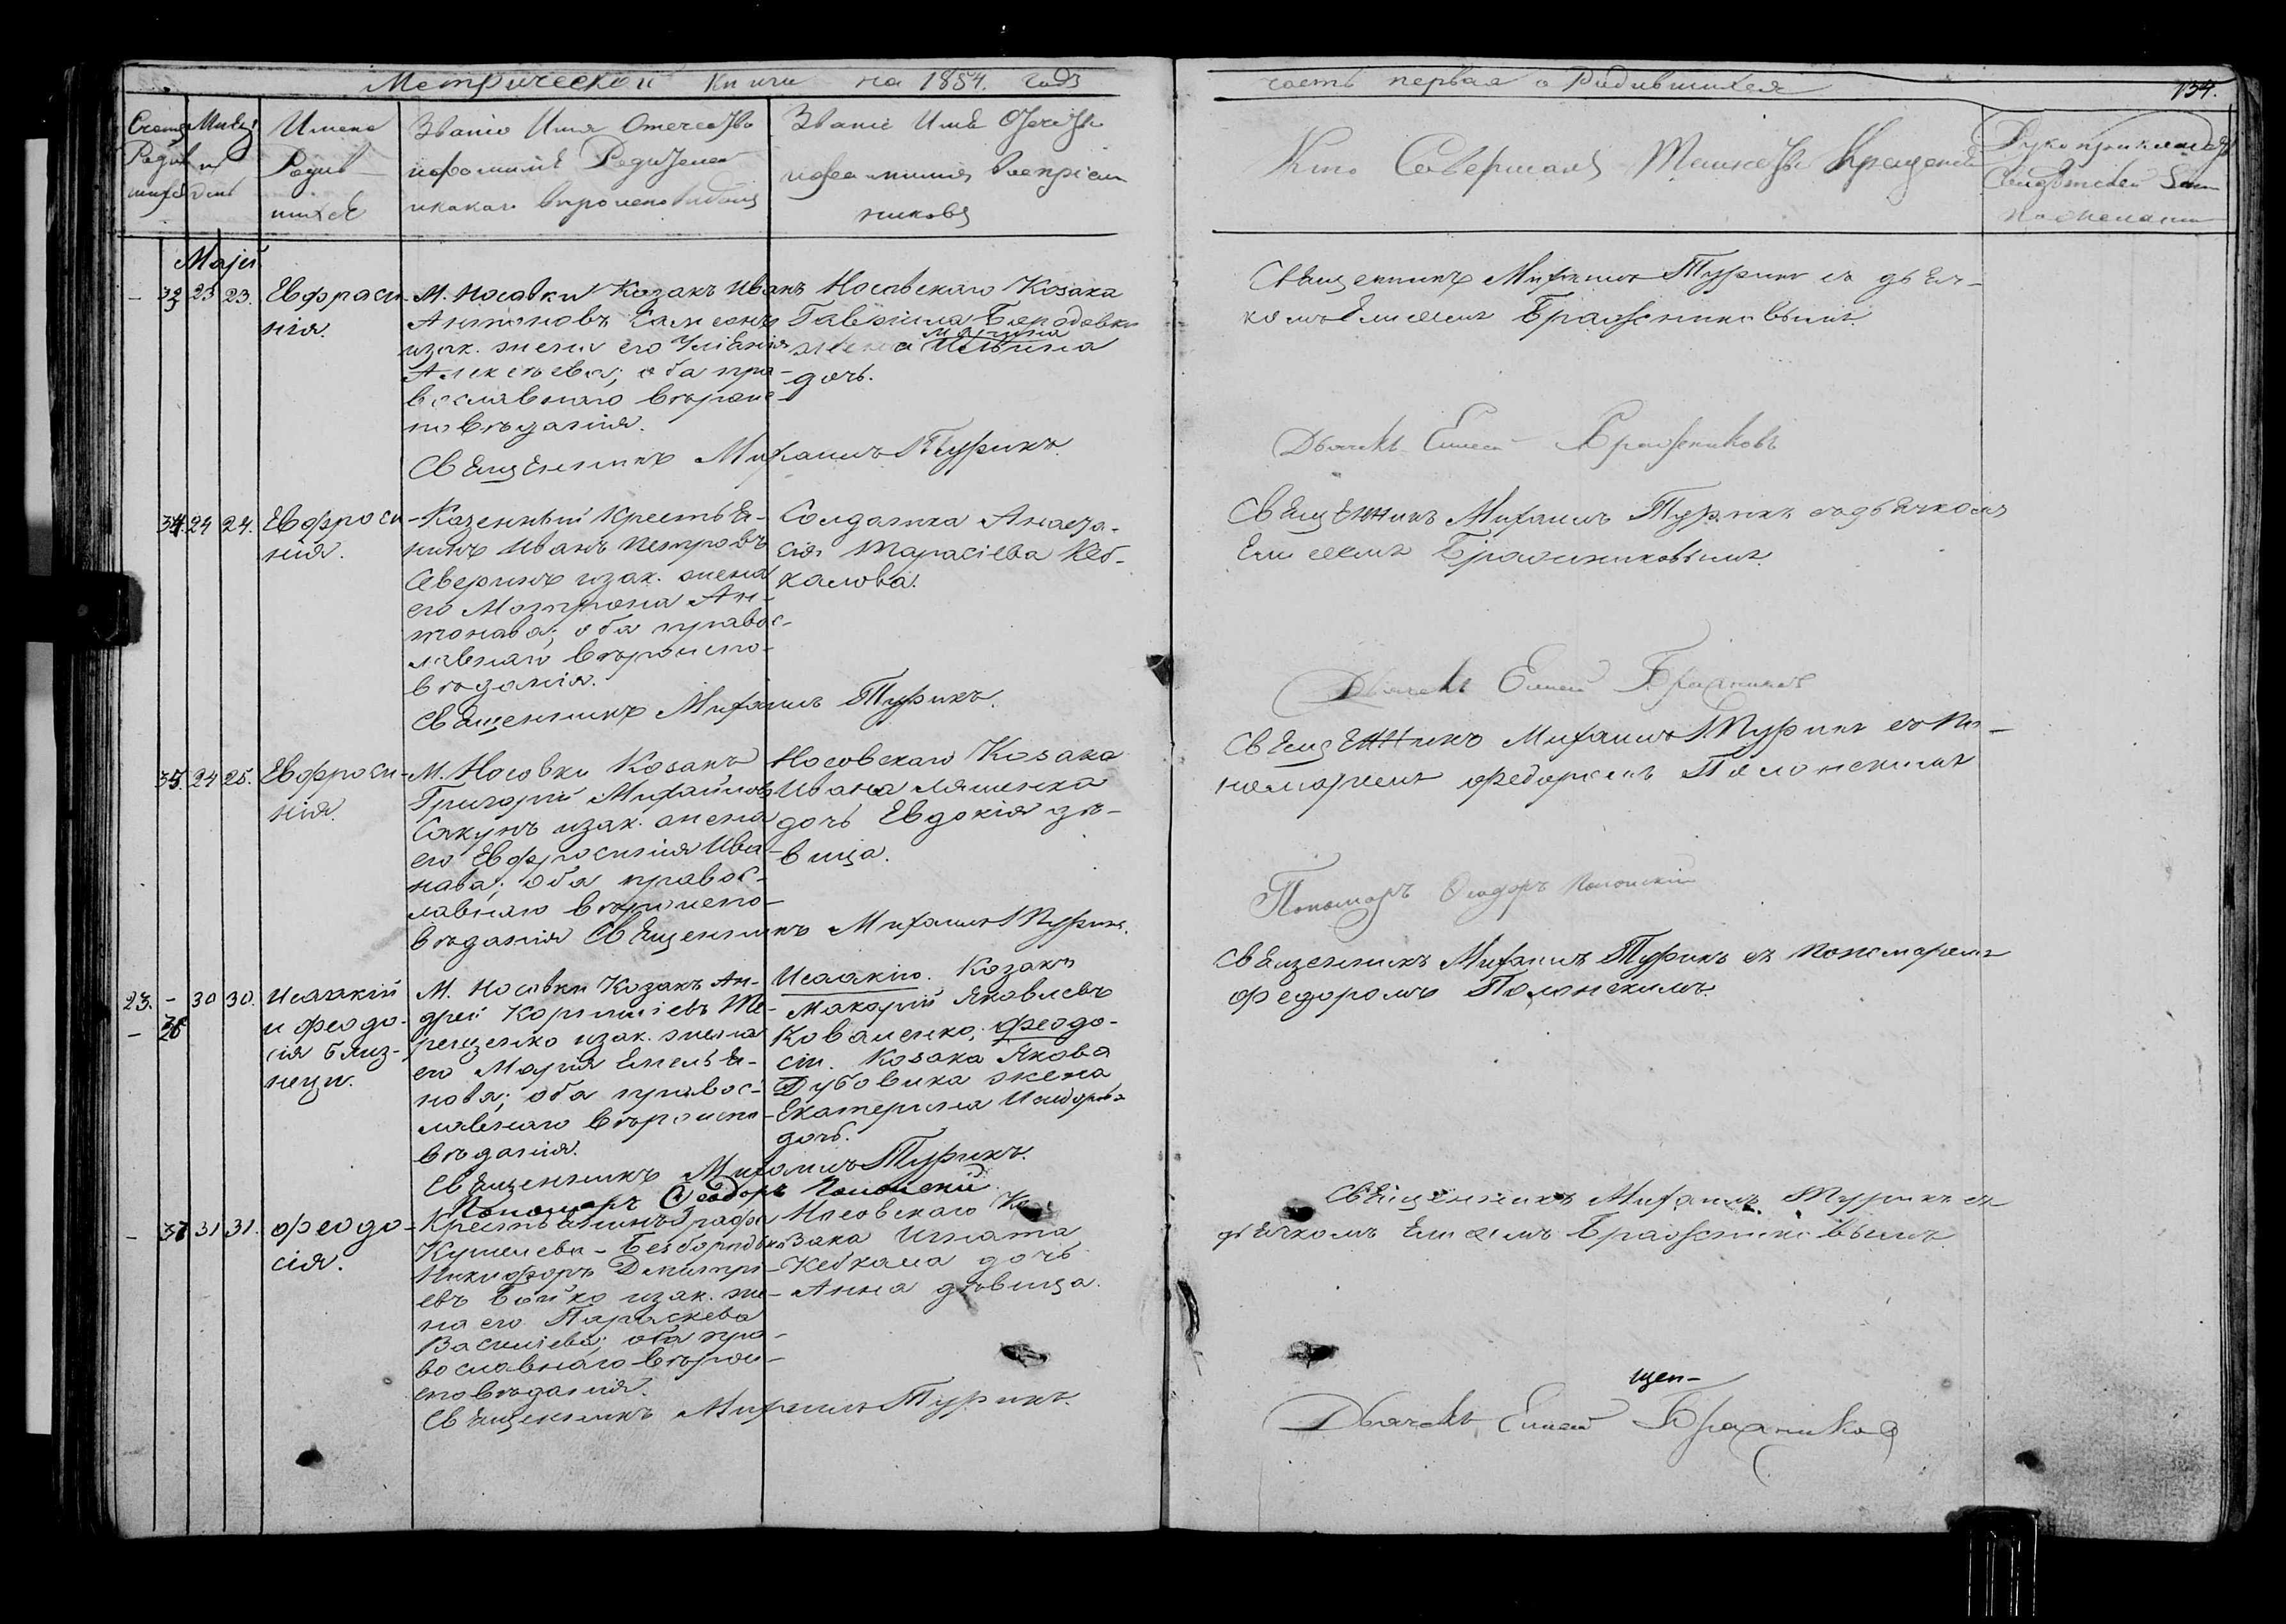 Метрической книги на 1854. годъ
часть первая о Родившихся
134.
Счетъ Родившихся
Мѣсяц и день
Имена Родившихся
Званіе Имя Отечество
и фамилія Родителей
и какаго вѣроисповѣданія
Званіе Имя Отечество
и фамилія воспріемниковъ
Кто Совершалъ Таинство Крещенія
Рукоприкладство
Свидѣтелей
по желанію
Маій
33 23 23. Евфросинія.
М. Носовки Козакъ Иванъ
Антоновъ
и зак. жена его Уліанія
Алексѣева; оба пра-
вославнаго вѣроис-
повѣданія.
Священникъ Михаилъ Турикъ.
Носовскаго Козака
Гавріила
жена
дочь.
Священникъ Михаилъ Турикъ съ дьяч-
комъ Елисеемъ Бражниковымъ.
Дьячекъ Елисей Бражниковъ
34. 24 24. Евфроси-
нія.
Казенный крестья-
нинъ Иванъ Петровъ
Северинъ и зак. жена
его Мотрона Ан-
тонова; оба правос-
лавнаго вѣроиспо-
вѣданія.
Священникъ Михаилъ Турикъ.
Солдатка Анаста-
сія Тарасіева Кеб-
калова.
Священникъ Михаилъ Турикъ съ дьячкомъ
Елисеемъ Бражниковымъ.
Дьячекъ Елисей Бражниковъ
35. 24 25. Евфроси-
нія.
М. Носовки Козакъ
Григорій Михайловъ
Сакунъ и зак. жена
его Евфросинія Ива-
нова; оба правос-
лавнаго вѣроиспо-
вѣданія Священникъ Михаилъ Турикъ.
Носовскаго Козака
Ивана Ляшенка
дочь Евдокія дѣ-
вица.
Священникъ Михаилъ Турикъ съ по-
номаремъ Федоромъ Полонскимъ
Пономарь Ѳеодоръ Полонскій
23. – 30 30. Исаакій
– 36 и Феодо-
сія близ-
нецы.
М. Носовки Козакъ Ан-
дрей Корниліевъ Те-
рещенко и зак. жена
его Марія Емелья-
нова; оба правос-
лавнаго вѣроиспо-
вѣданія.
Священникъ Михаилъ Турикъ.
Пономарь Ѳеодоръ Полонскій
Исаакію. Козакъ
Макарій Яковлевъ
Коваленко; Феодо-
сіи. Козака Якова
Дубовика жена
Екатерина Исидорова
дочь.
Священникъ Михаилъ Турикъ съ пономаремъ
Федоромъ Полонскимъ.
– 37 31 31. Феодо-
сія.
Крестьянинъ Графа
Кушелева-Безбородька
Никифоръ Дмитрі-
евъ Бойко и зак. же-
на его Параскева
Василіева; оба пра-
вославнаго вѣрои-
сповѣданія.
Священникъ Михаилъ Турикъ.
Носовскаго Ко-
зака Игната
Кебкала дочь
Анна дѣвица.
Священникъ Михаилъ Турикъ съ
дьячкомъ Елисеемъ Бражниковымъ
щен-
Дьячекъ Елисей Бражниковъ